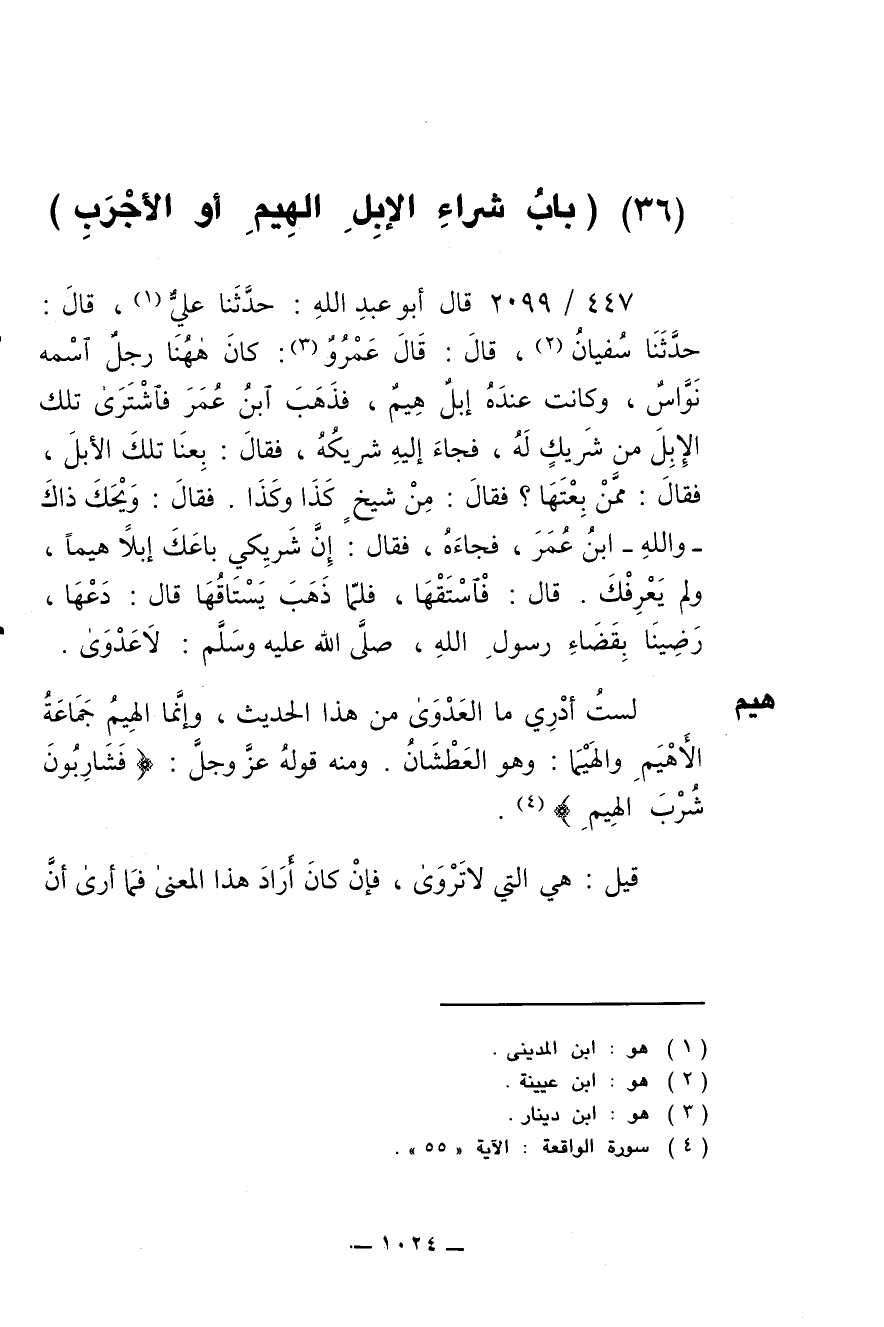 (٣٦) ( بابُ شراءِ الإبِلِ الهِيمِ أو الأجْرَبِ )
٤٤٧ / ٢٠٩٩ قال أبو عبدِ اللهِ : حدَّثَنا عليٌّ(١) ، قالَ :
حدَّثَنَا سُفيانُ(٢) ، قالَ : قَالَ عَمْرُوٌ(٣): كانَ هٰهُنَا رجلٌ ٱسْمه
نَوَّاسٌ ، وكانت عندَهُ إبلٌ هِيمٌ ، فذَهَبَ ٱبنُ عُمَرَ فٱشْتَرَىٰ تلك
الإِبِلَ من شَرِيكٍ لَهُ ، فجاءَ إليهِ شريكُهُ ، فقالَ : بِعنَا تلكَ الأبلَ ،
فقالَ : ممَّنْ بِعْتَهَا ؟ فقالَ : مِنْ شيخٍ كَذَا وكَذَا . فقالَ : وَيْحَكَ ذاكَ
ـ واللهِ ـ ابنُ عُمَرَ ، فجاءَهُ ، فقال : إنَّ شَرِيكي باعَكَ إبلاً هيماً ،
ولم يَعْرِفْكَ . قال : فْٱسْتَقْهَا ، فلمَّا ذَهَبَ يَسْتَاقُهَا قال : دَعْهَا ،
رَضِينَا بِقَضَاءِ رسولِ اللهِ ، صلَّى الله عليه وسَلَّم : لاَعَدْوَىٰ .
هيم
لستُ أدْرِي ما العَدْوَىٰ من هذا الحديث ، وإنَّما الهِيمُ جَمَاعَةُ
الأَهْيَمِ والهَيْما : وهو العَطْشَانُ . ومنه قولهُ عزَّ وجلَّ : ﴿ فَشَارِبُونَ
شُرْبَ الهِيمِ ﴾(٤) .
قيل : هي التي لاتَرْوَىٰ ، فإنْ كانَ أَرَادَ هذا المعنىٰ فمَا أرىٰ أنَّ
( ١ ) هو : ابن المدينى .
( ٢ ) هو : ابن عيينة .
( ٣ ) هو : ابن دينار .
( ٤ ) سورة الواقعة : الآية « ٥٥ » .
ـ ١٠٢٤ ـ